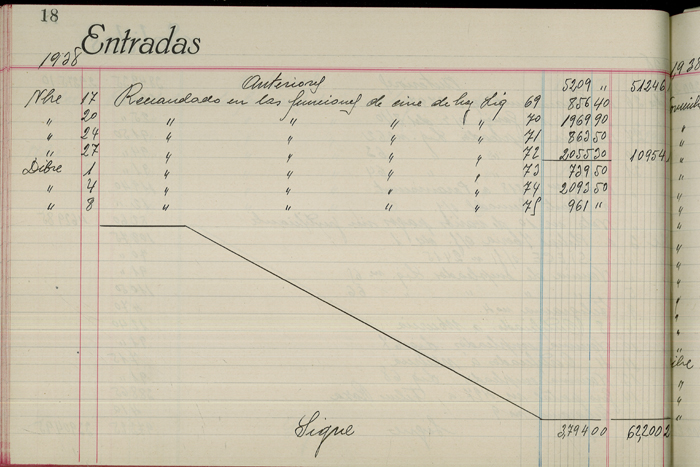 18
Entradas
1938
1938
Anteriores 5209 " 51246
Nbre 17 Recaudado en las funciones de cine de hoy Liq 69 856 40
" 20 " " " " 70 1969 90
" 24 " " " " 71 863 50
" 27 " " " " 72 2055 30 10954
Dibre 1 " " " " 73 739 50
" 4 " " " " 74 2093 50
" 8 " " " " 75 961 "
Sigue 3794 00 62,200